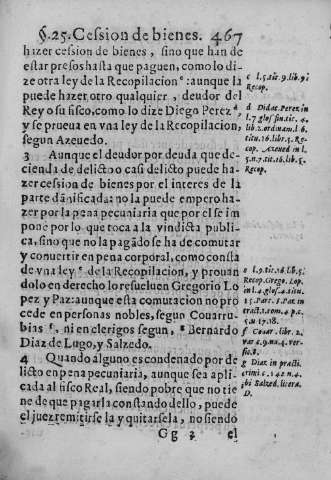 §.25. Cession de bienes. 467
hazer cession de bienes, sino que han de
estar presos hasta que paguen, como lo di
ze otra ley de la Recopilacion ᶜ: aunque la
puede hazer otro qualquier, deudor del
Rey o su fisco, como lo dize Diego Perez ᵈ
y se prueua en vna ley de la Recopilacion,
segun Azeuedo.
3 Aunque el deudor por deuda que de-
cienda de delicto o casi delicto puede ha-
zer cession de bienes por el interes de la
parte dãnificada: no la puede empero ha-
zer por la pena pecuniaria que por el se im
pone por lo que toca a la vindicta publi-
ca, sino que no la pagãdo se ha de comutar
y conuertir en pena corporal, como consta
de vna ley ᵉ de la Recopilacion, y prouan
dolo en derecho lo resueluen Gregorio Lo
pez y Paz: aunque esta comutacion no pro
cede en personas nobles, segun Couarru-
bias ᶠ, ni en clerigos segun, ᵍ Bernardo
Diaz de Lugo, y Salzedo.
4 Quando alguno es condenado por de
licto en pena pecuniaria, aunque sea apli-
cada al fisco Real, siendo pobre que no tie
ne de que pagarla constando dello, puede
el juez remitirse la y quitarsela, no siendo
Gg 3 el
c l.5.tit.9.lib.9.
Recop.
d Didac. Perez in
l.7.glos. fin.tit.4.
lib.2.ordinam.l.6.
titu.16.libr.5. Re-
cop. Azeued in l.
5.l.7.tit.16.lib.5.
Recop.
e l.9.tit.16.lib.5.
Recop. Grego. Lop.
in l.4.glos.4.titu.
15.Part.5. Paz in
5.u.17.18.
f Couar. libr.2.
var.c.1.nu.4. ver-
sic.8.
g Diaz in practi.
crimi c.142 n.4.
ibi Salzed. litera.
D.